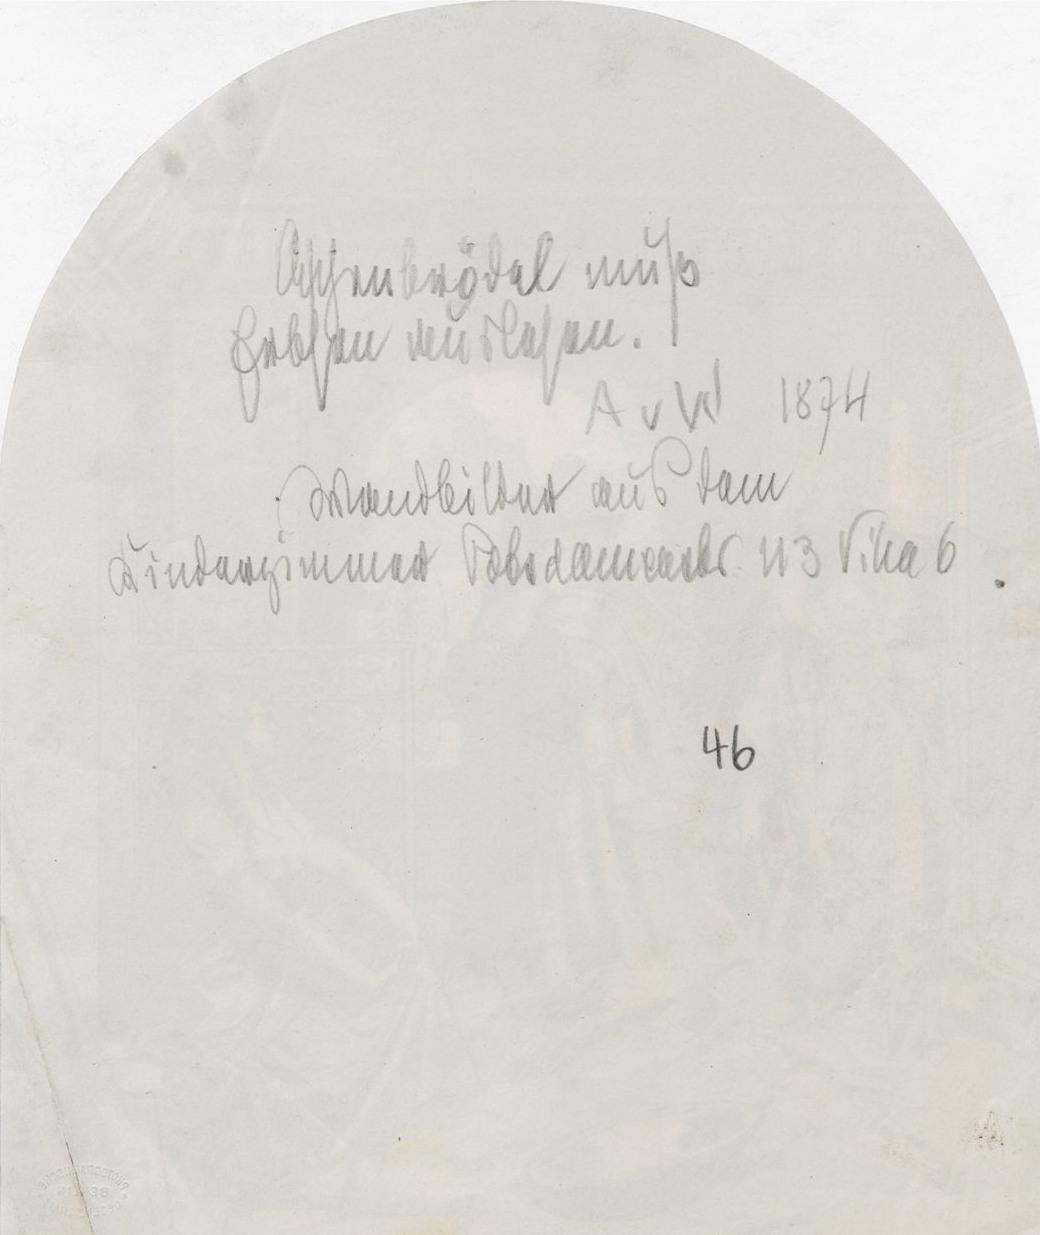 Aschenbrödel muß
Erbsen auslesen.
A v W 1874
Wandbilder aus dem
Kinderzimmer Potsdamerstr. 113 Villa 6
46